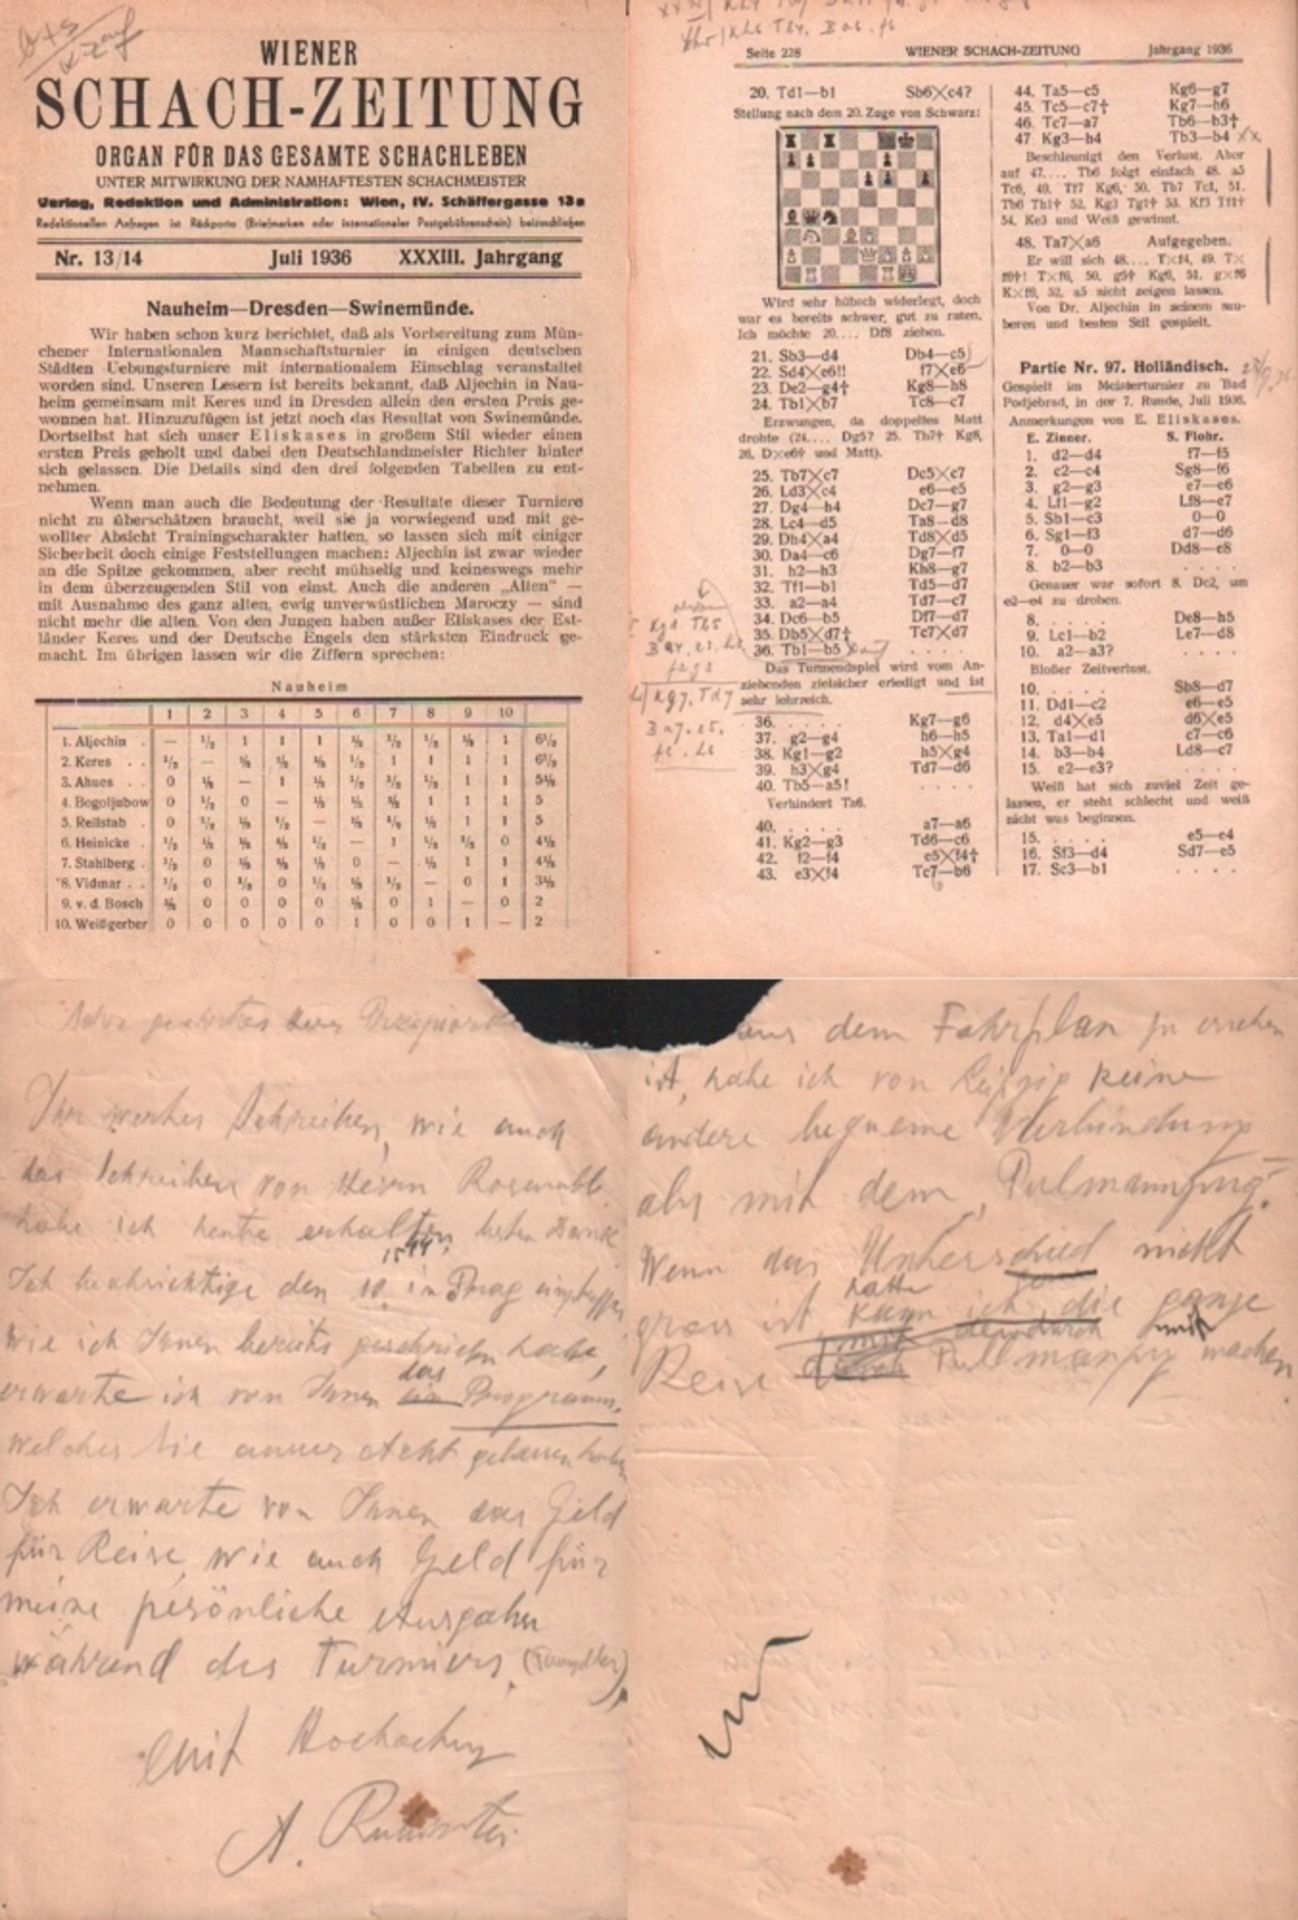 WIENER
SCHACH-ZEITUNG
ORGAN FÜR DAS GESAMTE SCHACHLEBEN
UNTER MITWIRKUNG DER NAMHAFTESTEN SCHACHMEISTER
Verlag, Redaktion und Administration: Wien, IV. Schäffergasse 13a
Redaktionellen Anfragen ist Rückporto (Briefmarken oder internationaler Postgebührenschein) beizuschließen
Nr. 13/14 Juli 1936 XXXIII. Jahrgang
Nauheim—Dresden—Swinemünde.
Wir haben schon kurz berichtet, daß als Vorbereitung zum Mün-
chener Internationalen Mannschaftsturnier in einigen deutschen
Städten Uebungsturniere mit internationalem Einschlag veranstaltet
worden sind. Unseren Lesern ist bereits bekannt, daß Aljechin in Nau-
heim gemeinsam mit Keres und in Dresden allein den ersten Preis ge-
wonnen hat. Hinzuzufügen ist jetzt noch das Resultat von Swinemünde.
Dortselbst hat sich unser Eliskases in großem Stil wieder einen
ersten Preis geholt und dabei den Deutschlandmeister Richter hinter
sich gelassen. Die Details sind den drei folgenden Tabellen zu ent-
nehmen.
Wenn man auch die Bedeutung der Resultate dieser Turniere
nicht zu überschätzen braucht, weil sie ja vorwiegend und mit ge-
wollter Absicht Trainingscharakter hatten, so lassen sich mit einiger
Sicherheit doch einige Feststellungen machen: Aljechin ist zwar wieder
an die Spitze gekommen, aber recht mühselig und keineswegs mehr
in dem überzeugenden Stil von einst. Auch die anderen „Alten“ —
mit Ausnahme des ganz alten, ewig unverwüstlichen Maroczy — sind
nicht mehr die alten. Von den Jungen haben außer Eliskases der Est-
länder Keres und der Deutsche Engels den stärksten Eindruck ge-
macht. Im übrigen lassen wir die Ziffern sprechen:
Nauheim
1 2 3 4 5 6 7 8 9 10
1. Aljechin . — ½ 1 1 1 ½ ½ ½ ½ 1 6½
2. Keres . . ½ — ½ ½ ½ ½ 1 1 1 1 6½
3. Ahues . 0 ½ — 1 ½ ½ ½ ½ 1 1 5½
4. Bogoljubow 0 ½ 0 — ½ ½ ½ 1 1 1 5
5. Rellstab . 0 ½ ½ ½ — ½ ½ ½ 1 1 5
6. Heinicke . ½ ½ ½ ½ ½ — 1 ½ ½ 0 4½
7. Stahlberg . ½ 0 ½ ½ ½ 0 — ½ 1 1 4½
8. Vidmar . . ½ 0 ½ 0 ½ ½ ½ — 0 1 3½
9. v. d. Bosch ½ 0 0 0 0 ½ 0 1 — 0 2
10. Weißgerber 0 0 0 0 0 1 0 0 1 — 2
Seite 228 WIENER SCHACH-ZEITUNG Jahrgang 1936
20. Td1—b1 Sb6×c4?
Stellung nach dem 20. Zuge von Schwarz:
Wird sehr hübsch widerlegt, doch
war es bereits schwer, gut zu raten.
Ich möchte 20.... Df8 ziehen.
21. Sb3—d4 Db4—c5
22. Sd4×e6!! f7×e6
23. De2—g4† Kg8—h8
24. Tb1×b7 Tc8—c7
Erzwungen, da doppeltes Matt
drohte (24.... Dg5? 25. Th7† Kg8,
26. D×e6† und Matt).
25. Tb7×c7 Dc5×c7
26. Ld3×c4 e6—e5
27. Dg4—h4 Dc7—g7
28. Lc4—d5 Ta8—d8
29. Dh4×a4 Td8×d5
30. Da4—c6 Dg7—f7
31. h2—h3 Kh8—g7
32. Tf1—b1 Td5—d7
33. a2—a4 Td7—c7
34. Dc6—b5 Df7—d7
35. Db5×d7† Tc7×d7
36. Tb1—b5 . . . .
Das Turmendspiel wird vom An-
ziehenden zielsicher erledigt und ist
sehr lehrreich.
36. . . . . Kg7—g6
37. g2—g4 h6—h5
38. Kg1—g2 h5×g4
39. h3×g4 Td7—d6
40. Tb5—a5! . . . .
Verhindert Ta6.
40. . . . . a7—a6
41. Kg2—g3 Td6—c6
42. f2—f4 e5×f4†
43. e3×f4 Tc7—b6
44. Ta5—c5 Kg6—g7
45. Tc5—c7† Kg7—h6
46. Tc7—a7 Tb6—b3†
47 Kg3—h4 Tb3—b4
Beschleunigt den Verlust. Aber
auf 47.... Tb6 folgt einfach 48. a5
Tc6, 49. Tf7 Kg6, 50. Tb7 Tc1, 51.
Tb6 Th1† 52. Kg3 Tg1† 53. Kf3 Tf1†
54. Ke3 und Weiß gewinnt.
48. Ta7×a6 Aufgegeben.
Er will sich 48.... T×f4, 49. T×
f6†! T×f6, 50. g5† Kg6, 51. g×f6
K×f6, 52. a5 nicht zeigen lassen.
Von Dr. Aljechin in seinem sau-
beren und besten Stil gespielt.
Partie Nr. 97. Holländisch.
Gespielt im Meisterturnier zu Bad
Podjebrad, in der 7. Runde, Juli 1936.
Anmerkungen von E. Eliskases.
E. Zinner. S. Flohr.
1. d2—d4 f7—f5
2. c2—c4 Sg8—f6
3. g2—g3 e7—e6
4. Lf1—g2 Lf8—e7
5. Sb1—c3 0—0
6. Sg1—f3 d7—d6
7. 0—0 Dd8—e8
8. b2—b3 . . . .
Genauer war sofort 8. Dc2, um
e2—e4 zu drohen.
8. . . . . De8—h5
9. Lc1—b2 Le7—d8
10. a2—a3? . . . .
Bloßer Zeitverlust.
10. . . . . Sb8—d7
11. Dd1—c2 e6—e5
12. d4×e5 d6×e5
13. Ta1—d1 c7—c6
14. b3—b4 Ld8—c7
15. e2—e3? . . . .
Weiß hat sich zuviel Zeit ge-
lassen, er steht schlecht und weiß
nicht was beginnen.
15. . . . . e5—e4
16. Sf3—d4 Sd7—e5
17. Sc3—b1 . . . .
Ihr wertes Schreiben, wie auch
das Schreiben von Herrn
habe ich heute erhalten, besten Dank
Ich beabsichtige den 10. in Prag
wie ich Ihnen bereits geschrieben habe,
erwarte ich von Ihnen das Programm,
welches Sie
Ich erwarte von Ihnen das Geld
für Reise, wie auch Geld für
meine persönliche Ausgaben
während des Turniers.
mit Hochachtung
A. Rubinstein
aus dem Fahrplan zu ersehen
ist, habe ich von Leipzig keine
andere bequeme Verbindung
als mit dem Pulmannzug.
Wenn das Unterschied nicht
gross ist ich die ganze
Reise mit Pullmanzug machen.